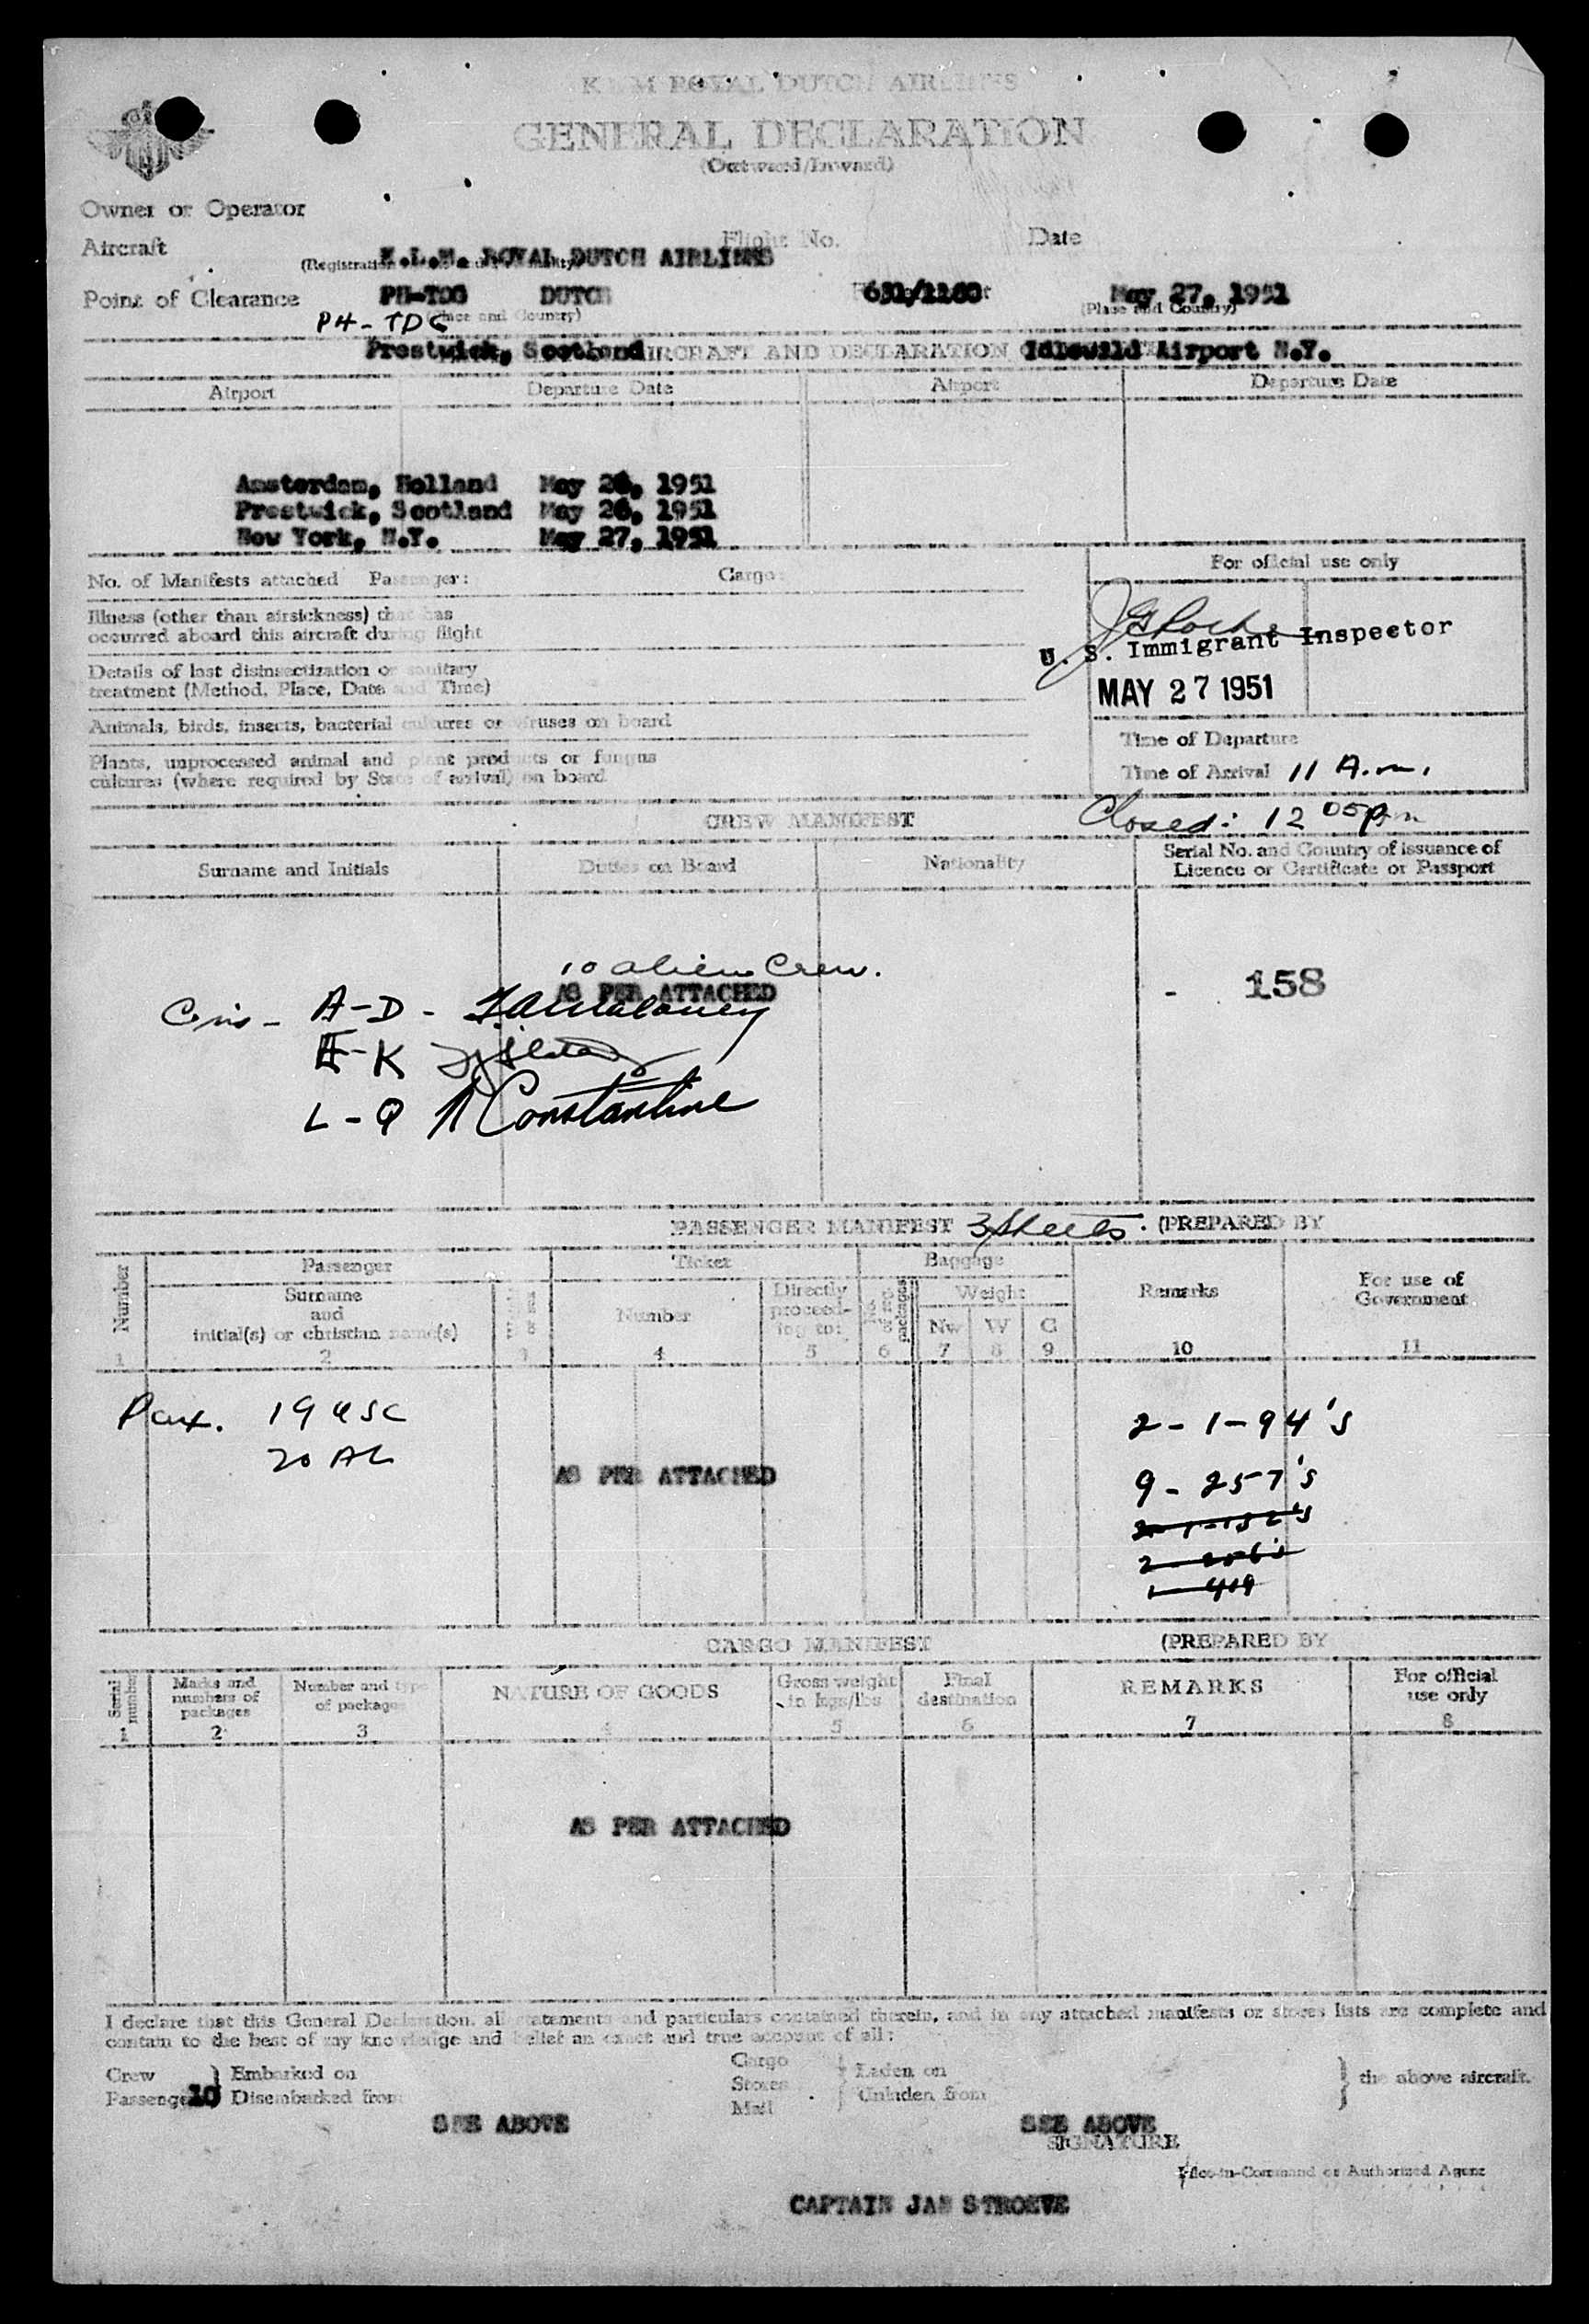 K L M ROYAL DUTCH AIRLINES
GENERAL DECLARATION
(Outward/Inward)
Owner or Operator
Aircraft Flight No. Date
K.L.M. ROYAL DUTCH AIRLINES
(Registration
Point of Clearance DUTCH May 27, 1951
(Place and Country) (Place and Country)
PH-TDG
Prestwick, Scotland AIRCRAFT AND DECLARATION Idlewild Airport N.Y.
Airport Departure Date Airport Departure Date
Amsterdam, Holland May 26, 1951
Prestwick, Scotland May 26, 1951
New York, N.Y. May 27, 1951
For official use only
No. of Manifests attached Passenger: Cargo:
Illness (other than airsickness) that has
occurred aboard this aircraft during flight
U. S. Immigrant Inspector
Details of last disinsectization or sanitary
treatment (Method, Place, Date and Time)
MAY 27 1951
Animals, birds, insects, bacterial cultures or viruses on board
Time of Departure
Plants, unprocessed animal and plant products or fungus
cultures (where required by State of arrival) on board
Time of Arrival 11 A.m.
Closed: 12 05 pm
CREW MANIFEST
Surname and Initials Duties on Board Nationality Serial No. and Country of issuance of
Licence or Certificate or Passport
10 alien Crew.
AS PER ATTACHED - 158
A-D - Maloney
E-K
L-Q Constantine
PASSENGER MANIFEST 3 sheets. (PREPARED BY
Number Passenger Ticket Baggage Remarks For use of
Government
Surname
and
initial(s) or christian name(s)
Number Directly
proceed-
ing to: No.
of
packages Weight
Nw W G
1 2 3 4 5 6 7 8 9 10 11
Pax. 19 USC 2-1-94's
20 AL
AS PER ATTACHED 9-257's
CARGO MANIFEST (PREPARED BY
Serial
number Marks and
numbers of
packages Number and type
of packages NATURE OF GOODS Gross weight
in kgs/lbs Final
destination REMARKS For official
use only
1 2 3 4 5 6 7 8
AS PER ATTACHED
I declare that this General Declaration, all statements and particulars contained therein, and in any attached manifests or stores lists are complete and
contain to the best of my knowledge and belief an exact and true account of all:
Crew } Embarked on Cargo } Laden on } the above aircraft.
Passengers 10 Disembarked from Stores Unladen from
Mail
SEE ABOVE SEE ABOVE
SIGNATURE
Pilot-in-Command or Authorized Agent
CAPTAIN JAN STROEVE